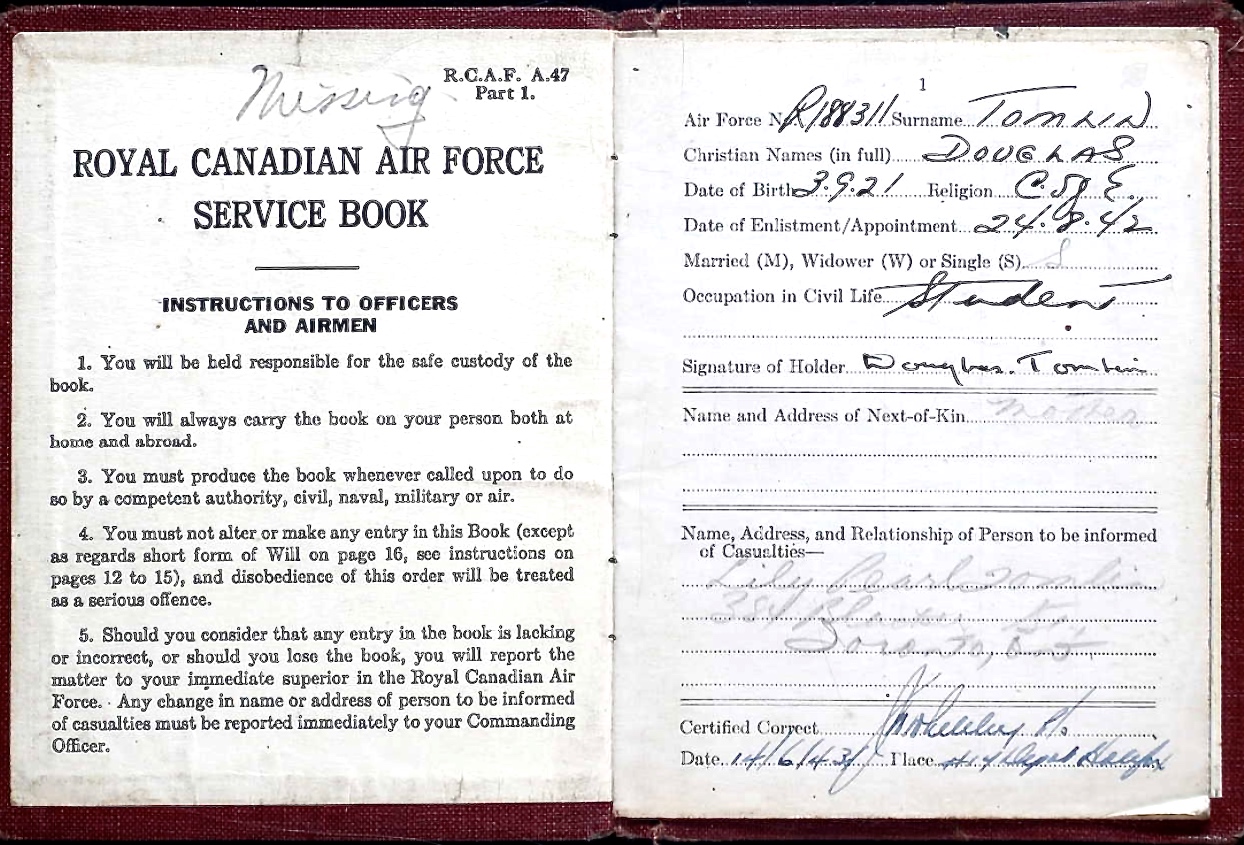 Missing
R.C.A.F. A.47
Part 1.
ROYAL CANADIAN AIR FORCE
SERVICE BOOK
INSTRUCTIONS TO OFFICERS
AND AIRMEN
1. You will be held responsible for the safe custody of the
book.
2. You will always carry the book on your person both at
home and abroad.
3. You must produce the book whenever called upon to do
so by a competent authority, civil, naval, military or air.
4. You must not alter or make any entry in this Book (except
as regards short form of Will on page 16, see instructions on
pages 12 to 15), and disobedience of this order will be treated
as a serious offence.
5. Should you consider that any entry in the book is lacking
or incorrect, or should you lose the book, you will report the
matter to your immediate superior in the Royal Canadian Air
Force. Any change in name or address of person to be informed
of casualties must be reported immediately to your Commanding
Officer.
1
Air Force No. R188311 Surname TOMLIN
Christian Names (in full) DOUGLAS
Date of Birth 3.9.21 Religion C. of E.
Date of Enlistment/Appointment 24.8.42
Married (M), Widower (W) or Single (S) S
Occupation in Civil Life Student
Signature of Holder Douglas. Tomlin
Name and Address of Next-of-Kin mother
Name, Address, and Relationship of Person to be informed
of Casualties—
Lily Pearl Tomlin
St.
Toronto,
Certified Correct
Date 14/6/43 Place Depot Halifax